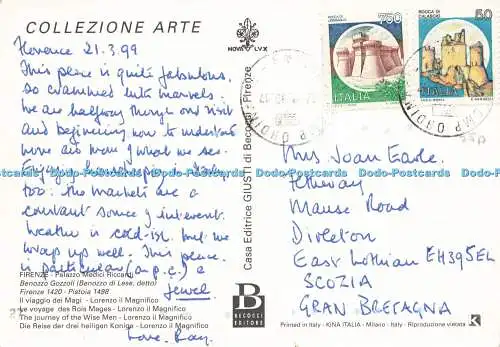 COLLEZIONE ARTE
NOVA LVX
Florence 21.3.99
This place is quite fabulous,
so crammed with marvels.
We are halfway through our visit
and beginning now to understand
more and more of what we see.
Enjoying
too. The markets are a
constant source of interest.
Weather is cold-ish but we
wrap up well. This place
in particular (on p.c.) a
jewel.
Love. Ray.
FIRENZE - Palazzo Medici Riccardi
Benozzo Gozzoli (Benozzo di Lese, detto)
Firenze 1420 - Pistoia 1498
Il viaggio dei Magi - Lorenzo il Magnifico
Le voyage des Rois Mages - Lorenzo il Magnifico
The journey of the Wise Men - Lorenzo il Magnifico
Die Reise der drei heiligen Konige - Lorenzo il Magnifico
Casa Editrice GIUSTI di Becocci - Firenze
B
BECOCCI
EDITORE
750
ITALIA
50
ROCCA DI
CALASCIO
ITALIA
Mrs Joan Earle
Manse Road
Dirleton
East Lothian EH39 5EL
SCOZIA
GRAN BRETAGNA
Printed in Italy - KINA ITALIA - Milano - Italy - Riproduzione vietata
K
Dodo-Postcards Dodo-Postcards Dodo-Postcards Dodo-Postcards